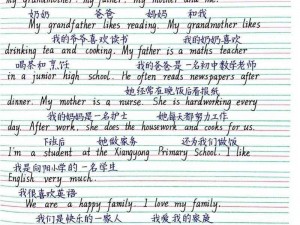 grandmother, my father, my mother and me.
奶奶 爸爸 妈妈 和我
My grandfather likes reading. My grandmother likes
我的爷爷喜欢读书 我的奶奶喜欢
drinking tea and cooking. My father is a maths teacher
喝茶和烹饪 我的爸爸是一名初中数学老师
in a junior high school. He often reads newspapers after
他经常在晚饭后看报纸
dinner. My mother is a nurse. She is hardworking every
我的妈妈是一名护士 她每天都努力工作
day. After work, she does the housework and cooks for us.
下班后 她做家务 还为我们做饭
I'm a student at the Xiangyong Primary School. I like
我是向阳小学的一名学生
English very much.
我很喜欢英语
We are a happy family. I love my family.
我们是快乐的一家人 我爱我的家庭